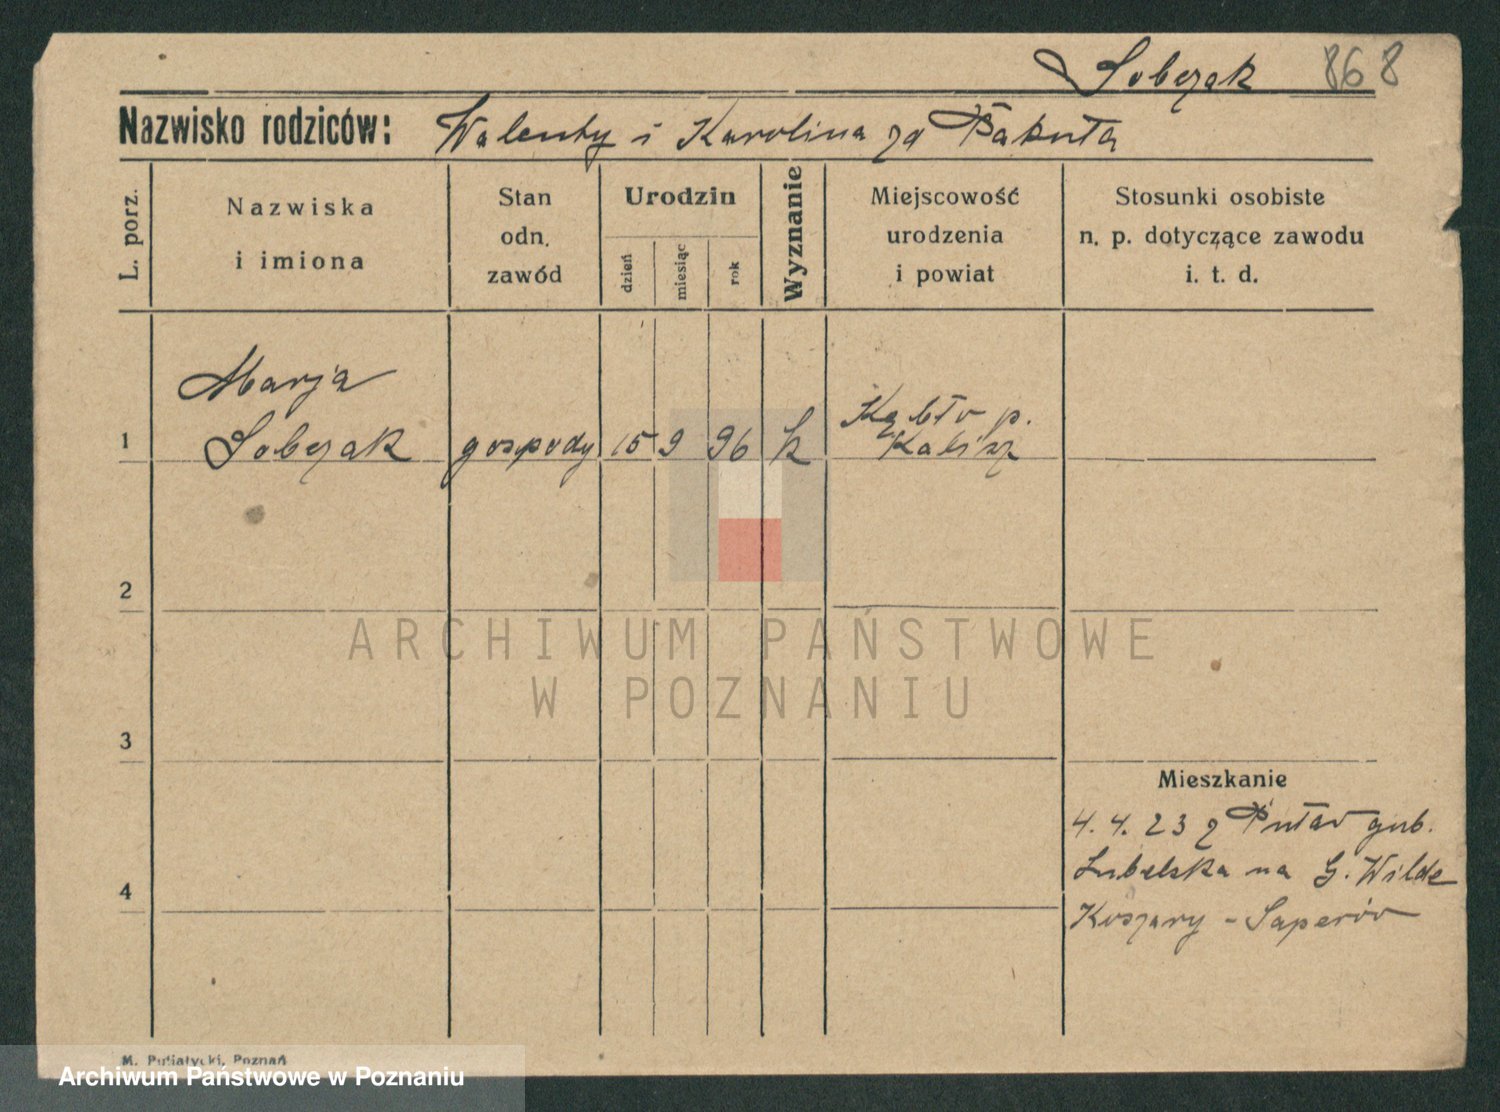 Sobczak 868
Nazwisko rodziców: Walenty i Karolina zd Pakuła
L. porz.
Nazwiska
i imiona
Stan
odn.
zawód
Urodzin
dzień
miesiąc
rok
Wyznanie
Miejscowość
urodzenia
i powiat
Stosunki osobiste
n. p. dotyczące zawodu
i. t. d.
Marja
1 Sobczak gospody 15 9 96 k
p.
Kalisz
2
ARCHIWUM PAŃSTWOWE
W POZNANIU
3
Mieszkanie
4. 4. 23 z Puław gub.
Lubelska na G. Wilde
4
Koszary - Saperów
M. Putiatycki, Poznań
Archiwum Państwowe w Poznaniu